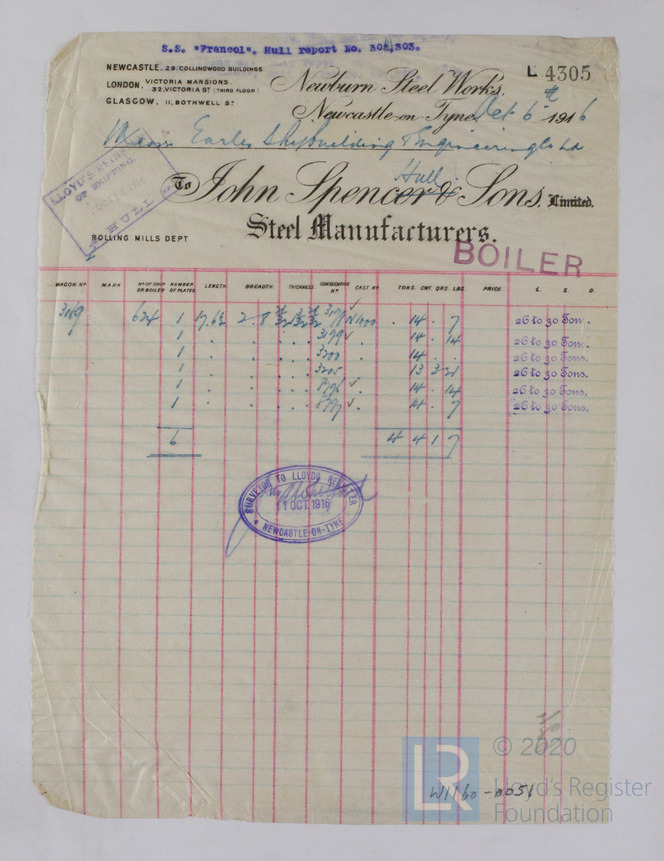 S.S. "Francol". Hull report No. 304,303.
NEWCASTLE. 29. COLLINGWOOD BUILDINGS
LONDON. VICTORIA MANSIONS. 32, VICTORIA ST (THIRD FLOOR)
GLASGOW, 11, BOTHWELL ST
L 4305
Newburn Steel Works,
Newcastle-on-Tyne, Oct 6th 1916
Messrs Earles Shipbuilding & Engineering Co Ld
Hull
LLOYD'S
OF SHIPPING.
HULL
To John Spencer & Sons, Limited.
Steel Manufacturers.
ROLLING MILLS DEPT
BOILER
WAGON No MARK No OF SHIP OR BOILER NUMBER OF PLATES LENGTH BREADTH THICKNESS CONSECUTIVE No CAST No TONS. CWT. QRS. LBS. PRICE L. S. D.
624 1 2.8 . 14 . 7 26 to 30 Ton.
1 14 . 14 26 to 30 Ton.
1 3200 14 . . 26 to 30 Tons.
1 3205 13 3 21 26 to 30 Tons.
1 14 . 14 26 to 30 Tons.
1 14 . 7 26 to 30 Tons.
6 4 4 1 7
SURVEYOR TO LLOYDS REGISTER
11 OCT. 1916
NEWCASTLE-ON-TYNE
LR © 2020
Lloyd's Register
Foundation
W1160-0051